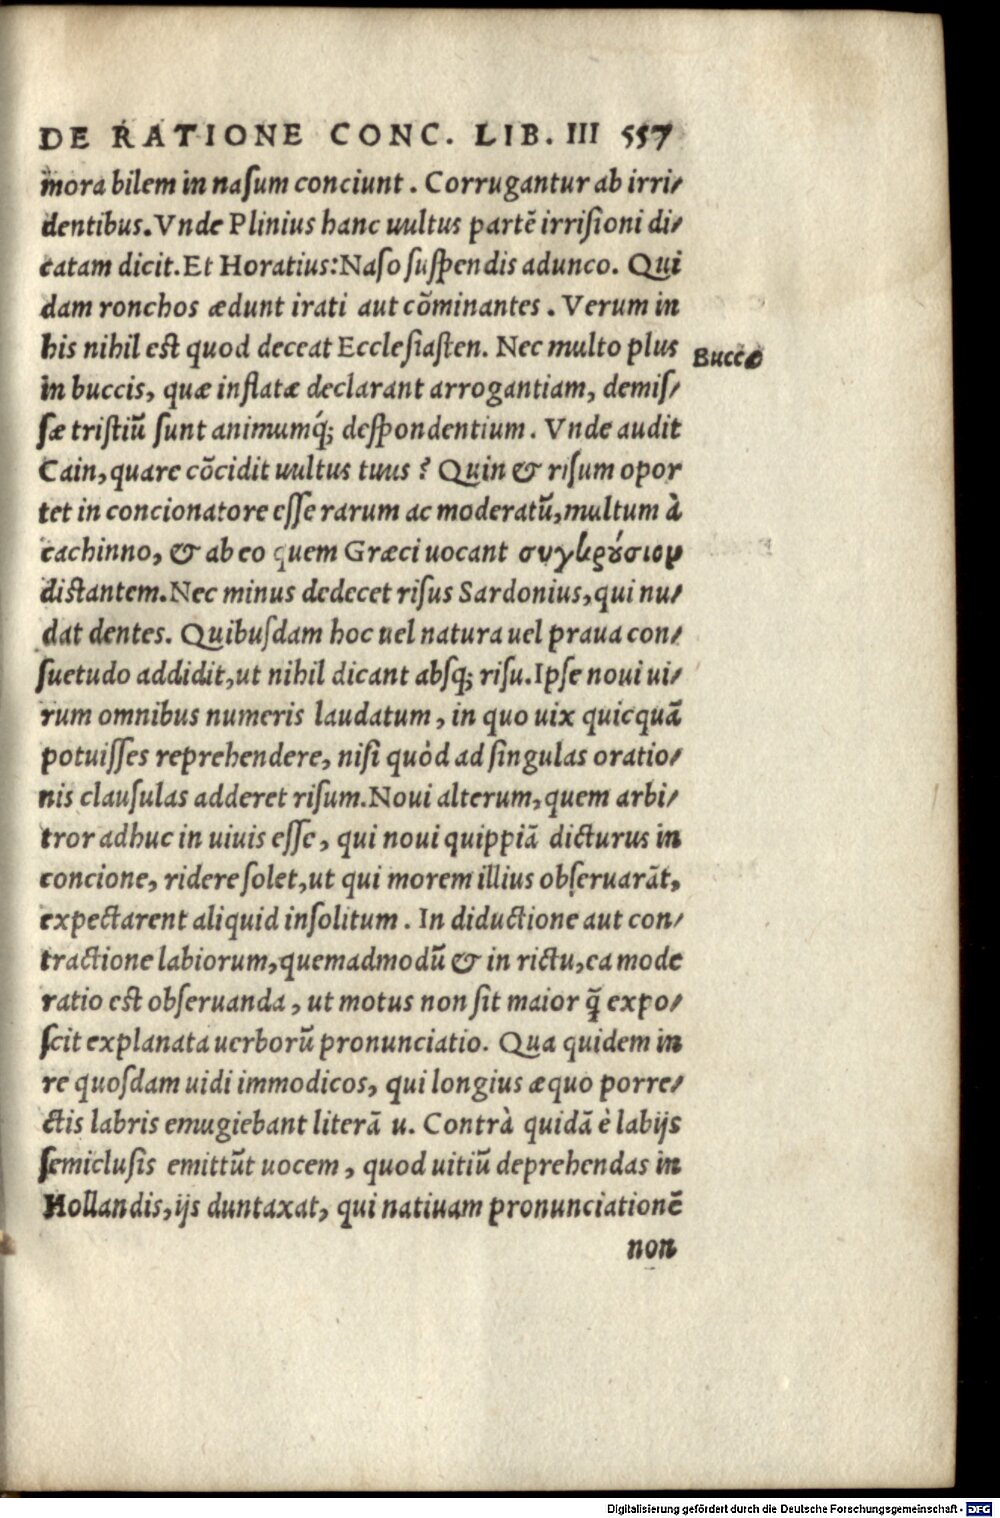 DE RATIONE CONC. LIB. III 557
mora bilem in naſum conciunt. Corrugantur ab irri/
dentibus. Vnde Plinius hanc uultus partẽ irriſioni di/
catam dicit. Et Horatius: Naſo ſuſpendis adunco. Qui
dam ronchos ædunt irati aut cõminantes. Verum in
his nihil est quod deceat Eccleſiaſten. Nec multo plus
Buccæ
in buccis, quæ inflatæ declarant arrogantiam, demiſ/
ſæ tristiũ ſunt animumq́; deſpondentium. Vnde audit
Cain, quare cõcidit uultus tuus? Quin & riſum opor
tet in concionatore eſſe rarum ac moderatũ, multum à
cachinno, & ab eo quem Græci uocant συγκρούσιον
distantem. Nec minus dedecet riſus Sardonius, qui nu/
dat dentes. Quibuſdam hoc uel natura uel praua con/
ſuetudo addidit, ut nihil dicant abſq; riſu. Ipſe noui ui/
rum omnibus numeris laudatum, in quo uix quicquã
potuiſſes reprehendere, niſi quòd ad ſingulas oratio/
nis clauſulas adderet riſum. Noui alterum, quem arbi/
tror adhuc in uiuis eſſe, qui noui quippiã dicturus in
concione, ridere ſolet, ut qui morem illius obſeruarãt,
expectarent aliquid inſolitum. In diductione aut con/
tractione labiorum, quemadmodũ & in rictu, ea mode
ratio est obſeruanda, ut motus non ſit maior q̃ expo/
ſcit explanata uerborũ pronunciatio. Qua quidem in
re quoſdam uidi immodicos, qui longius æquo porre/
ctis labris emugiebant literã u. Contrà quidã è labijs
ſemicluſis emittũt uocem, quod uitiũ deprehendas in
Hollandis, ijs duntaxat, qui natiuam pronunciationẽ
non
Digitalisierung gefördert durch die Deutsche Forschungsgemeinschaft - DFG